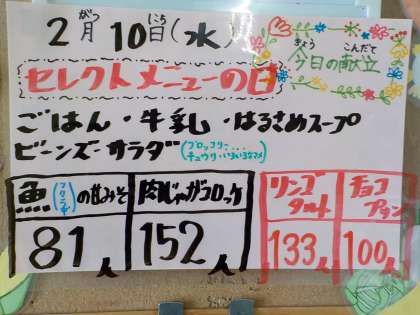 2月10日(水)
がつ にち
きょう こんだて
今日の献立
セレクトメニューの日
ごはん・牛乳・はるさめスープ
ビーンズサラダ(ブロッコリー
魚の甘みそ 肉じゃがコロッケ リンゴタルト チョコプリン
81人 152人 133人 100人